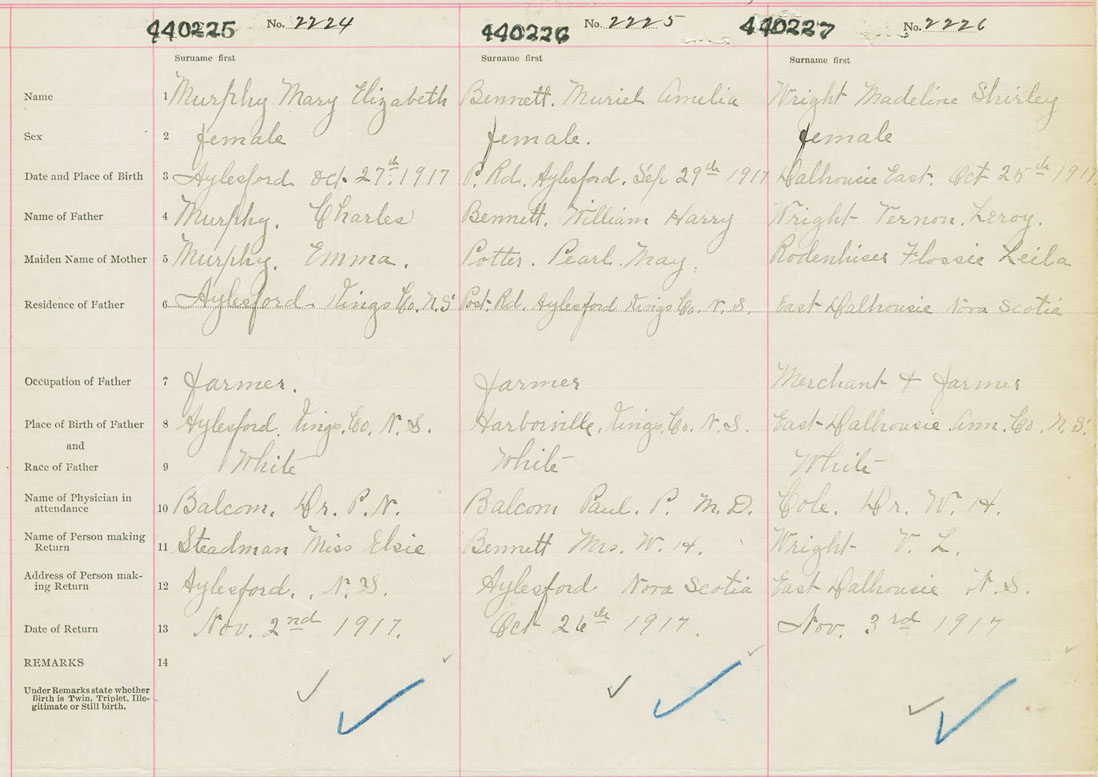 440225 No. 2224 440226 No. 2225 440227 No. 2226
Surname first Surname first Surname first
Name 1 Murphy Mary Elizabeth Bennett. Muriel Amelia Wright Madeline Shirley
Sex 2 female female. female
Date and Place of Birth 3 Aylesford Oct 27th. 1917 P. Rd. Aylesford. Sep 29th 1917 Dalhousie East. Oct 25th 1917
Name of Father 4 Murphy. Charles Bennett. William Harry Wright Vernon. Leroy.
Maiden Name of Mother 5 Murphy. Emma. Potter. Pearl. May. Rodenhiser Flossie Leila
Residence of Father 6 Aylesford Kings Co. N.S Post. Rd. Aylesford Kings Co. N. S. East Dalhousie Nova Scotia
Occupation of Father 7 farmer. farmer Merchant & farmer
Place of Birth of Father 8 Aylesford. Kings. Co. N. S. Harborville, Kings. Co. N. S. East Dalhousie Ann. Co. N. S.
and
Race of Father 9 White White White
Name of Physician in
attendance 10 Balcom. Dr. P. N. Balcom Paul. P. M. D. Cole. Dr. W. H.
Name of Person making
Return 11 Steadman Miss Elsie Bennett Mrs. W. H. Wright V. L.
Address of Person mak-
ing Return 12 Aylesford., N. S. Aylesford Nova Scotia East Dalhousie N. S.
Date of Return 13 Nov. 2nd 1917. Oct 26th 1917. Nov. 3rd 1917
REMARKS 14
Under Remarks state whether
Birth is Twin, Triplet, Ille-
gitimate or Still birth.